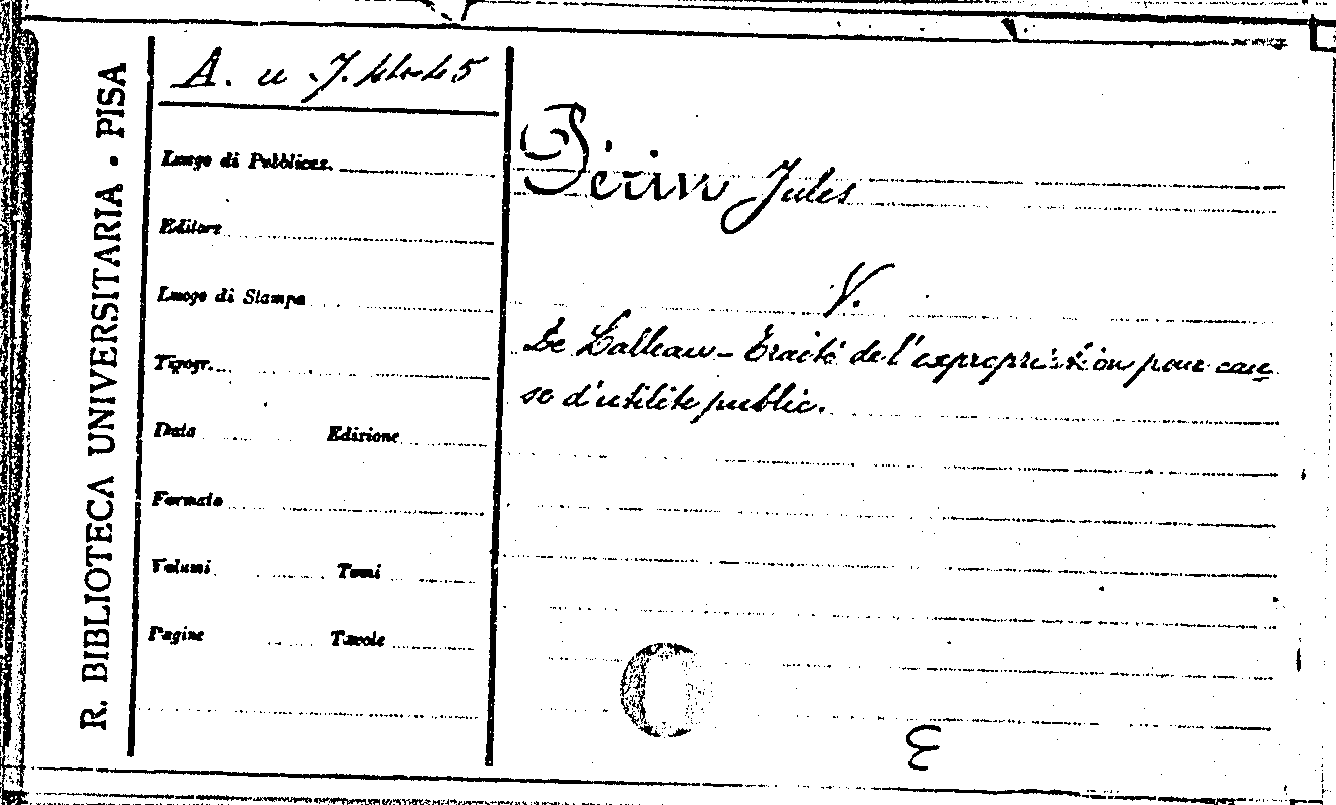 R. BIBLIOTECA UNIVERSITARIA • PISA
A. u 7. 44-45
Luogo di Pubblicaz.
Editore
Luogo di Stampa
Tipogr.
Data Edizione
Formato
Volumi Tomi
Pagine Tavole
Périn Jules
V.
De Lalleau - Traité de l'expropriation pour cau
se d'utilité public.
C
E